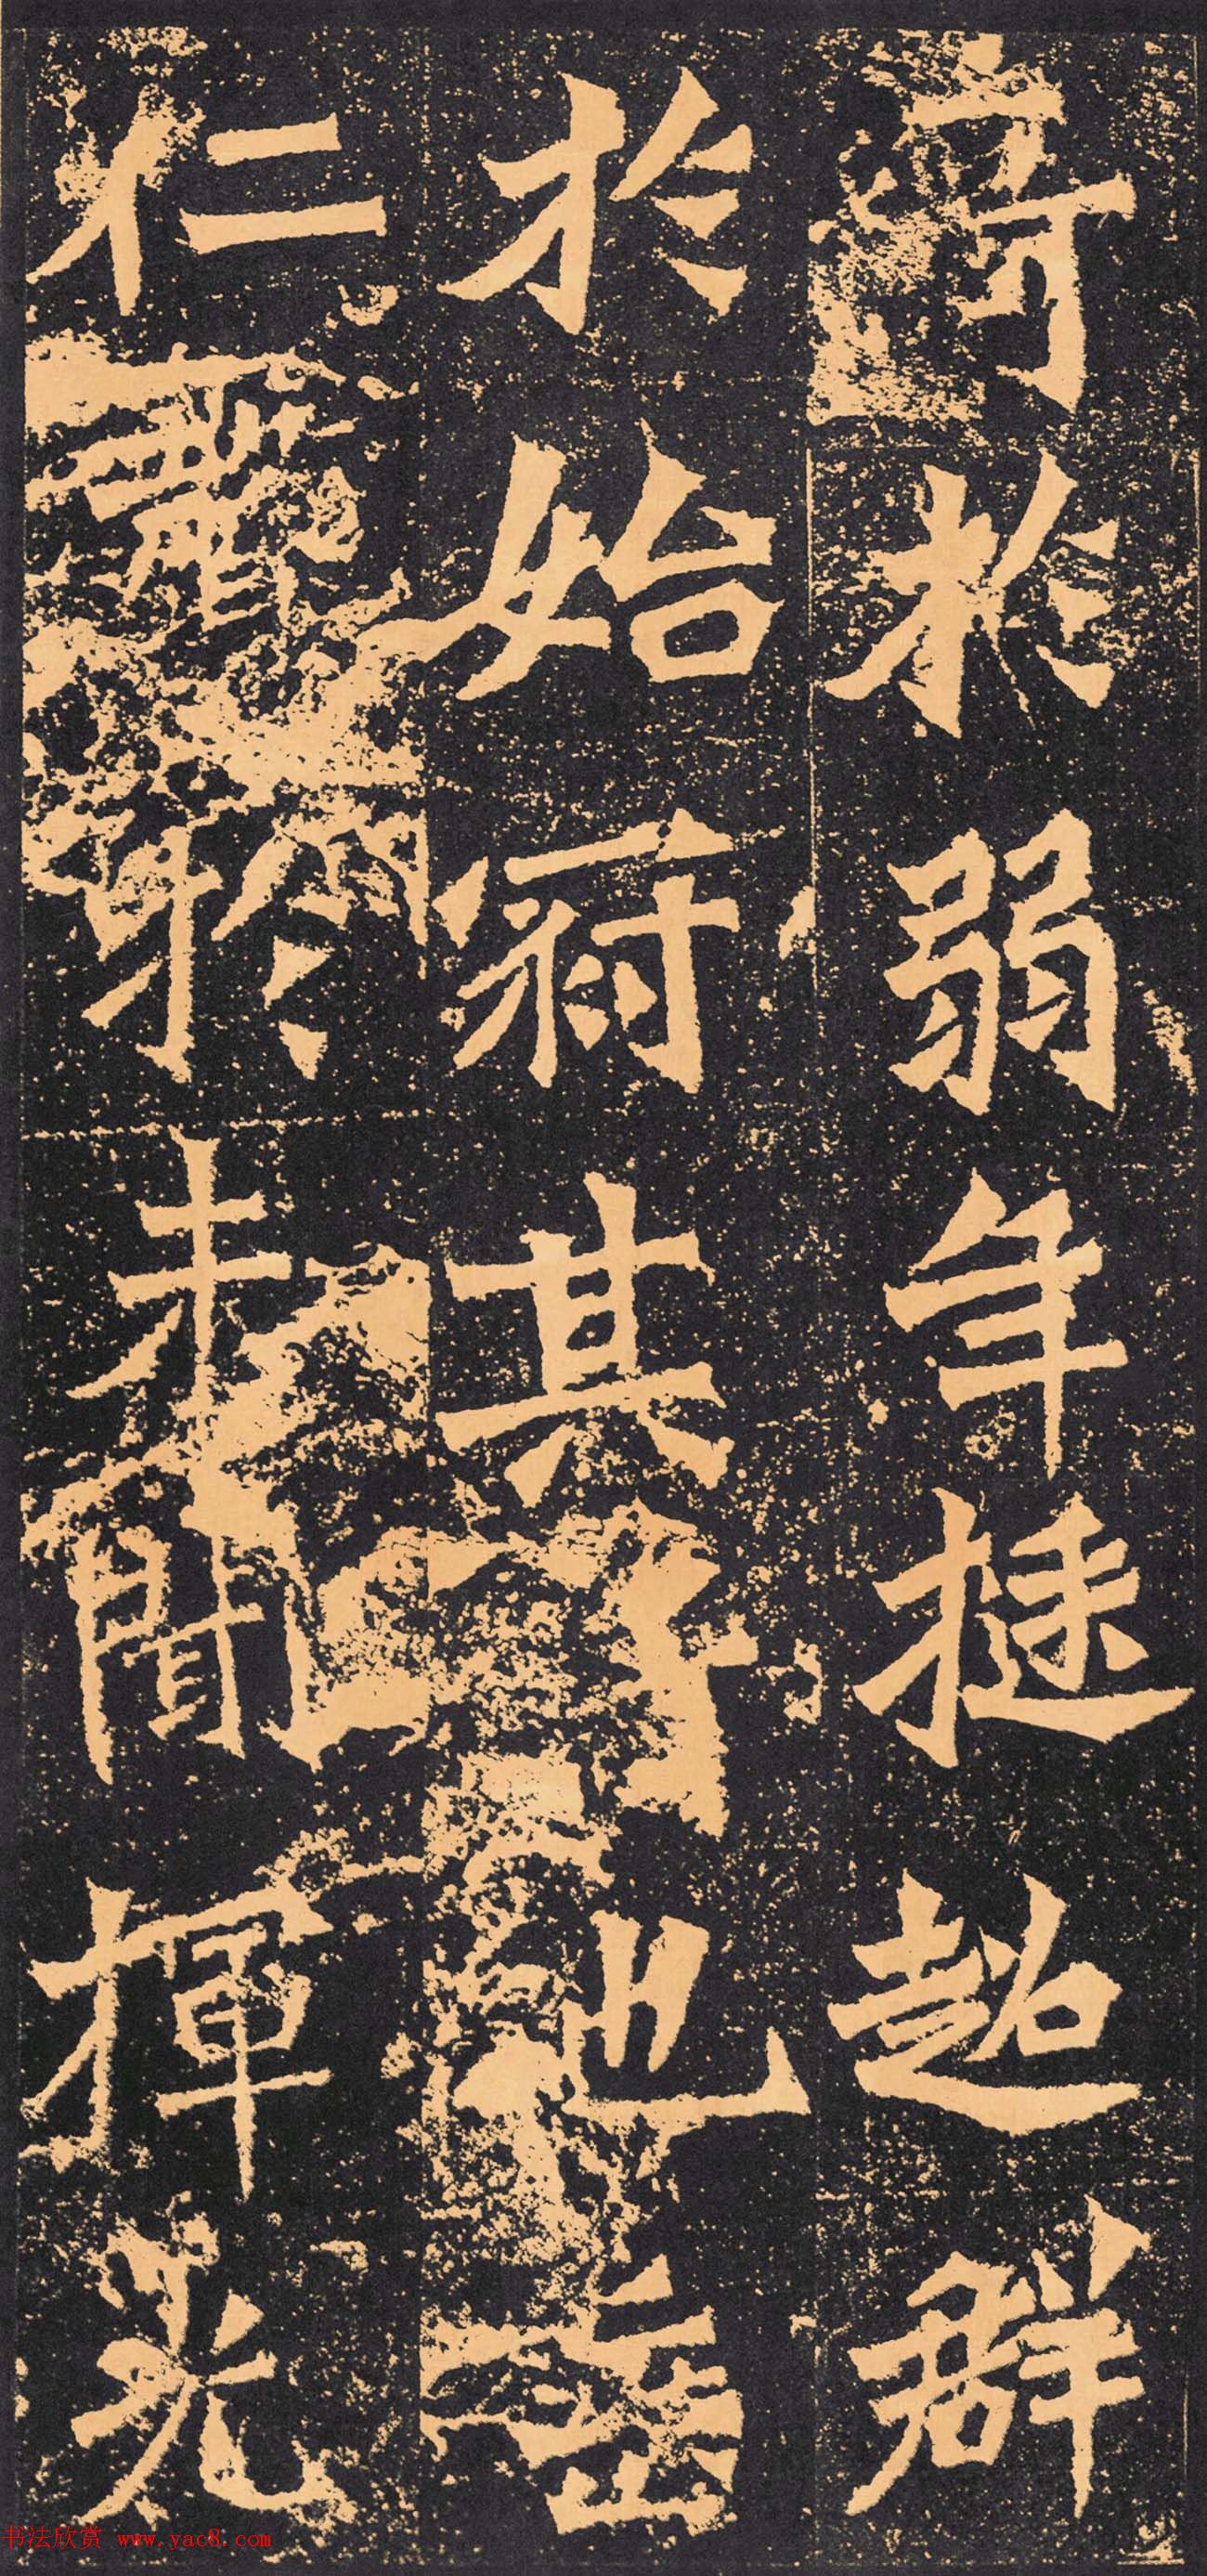 奇於弱年挺超群
於始其也
仁於未聞揮光
书法欣赏 www.yac8.com